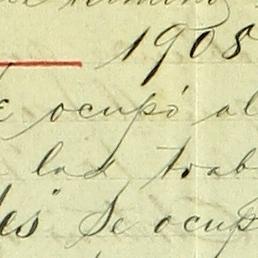 1908
se ocupó al
las trab
es" Se ocup